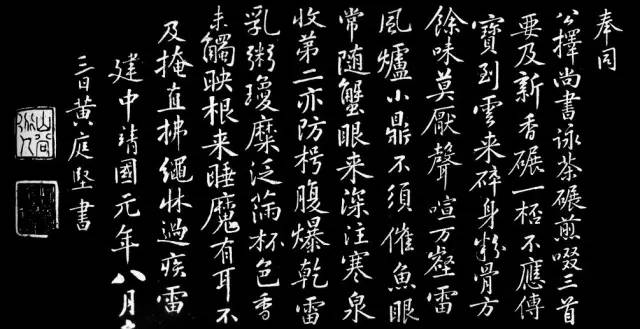 奉同
公擇尚書詠茶碾煎啜三首
要及新香碾一杯不應傳
寶到雲来碎身粉骨方
餘味莫厭聲喧万壑雷
風爐小鼎不須催魚眼
常随蟹眼来深注寒泉
收第二亦防枵腹爆乾雷
乳粥瓊糜泛滿杯色香
未觸映根来睡魔有耳不
及掩直拂繩牀過疾雷
建中靖國元年八月
三日黃庭堅書